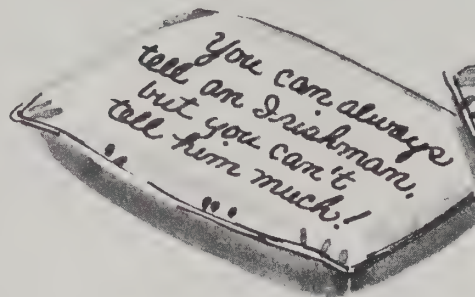 You can always
tell an Irishman,
but you can't
tell him much!